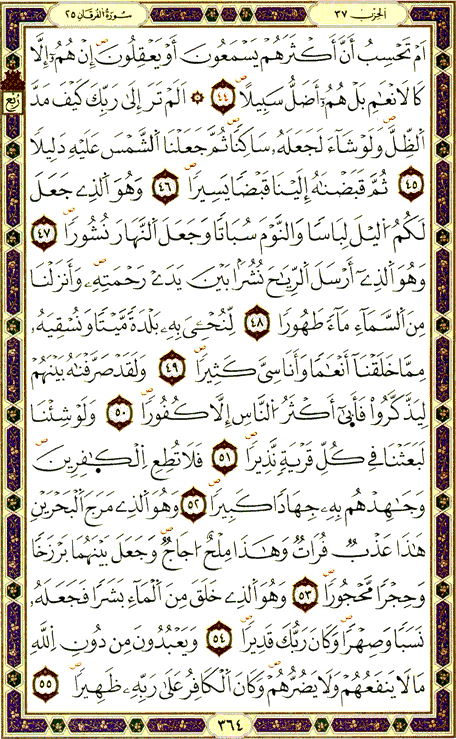 الحزب ٣٧
سورة الفرقان ٢٥
أَمْ تَحْسِبُ أَنَّ أَكْثَرَهُمْ يَسْمَعُونَ أَوْ يَعْقِلُونَ إِنْ هُمْ إِلَّا
كَالْأَنْعَٰمِ بَلْ هُمْ أَضَلُّ سَبِيلًا ٤٤ أَلَمْ تَرَ إِلَىٰ رَبِّكَ كَيْفَ مَدَّ
ربع
اَلظِّلَّ وَلَوْ شَآءَ لَجَعَلَهُۥ سَاكِنًا ثُمَّ جَعَلْنَا اَلشَّمْسَ عَلَيْهِ دَلِيلًا
٤٥ ثُمَّ قَبَضْنَٰهُ إِلَيْنَا قَبْضًا يَسِيرًا ٤٦ وَهُوَ اَلَّذِے جَعَلَ
لَكُمُ اُلَّيْلَ لِبَاسًا وَالنَّوْمَ سُبَاتًا وَجَعَلَ اَلنَّهَارَ نُشُورًا ٤٧
وَهُوَ اَلَّذِےٓ أَرْسَلَ اَلرِّيَٰحَ نُشُرًۢا بَيْنَ يَدَےْ رَحْمَتِهِۦ وَأَنزَلْنَا
مِنَ اَلسَّمَآءِ مَآءً طَهُورًا ٤٨ لِّنُحْـِۧىَ بِهِۦ بَلْدَةً مَّيْتًا وَنُسْقِيَهُۥ
مِمَّا خَلَقْنَآ أَنْعَٰمًا وَأَنَاسِىَّ كَثِيرًا ٤٩ وَلَقَدْ صَرَّفْنَٰهُ بَيْنَهُمْ
لِيَذَّكَّرُوا۟ فَأَبَىٰٓ أَكْثَرُ اُلنَّاسِ إِلَّا كُفُورًا ٥٠ وَلَوْ شِئْنَا
لَبَعَثْنَا فِے كُلِّ قَرْيَةٍ نَّذِيرًا ٥١ فَلَا تُطِعِ اِلْكَٰفِرِينَ
وَجَٰهِدْهُم بِهِۦ جِهَادًا كَبِيرًا ٥٢ وَهُوَ اَلَّذِے مَرَجَ اَلْبَحْرَيْنِ
هَٰذَا عَذْبٌ فُرَاتٌ وَهَٰذَا مِلْحٌ أُجَاجٌ وَجَعَلَ بَيْنَهُمَا بَرْزَخًا
وَحِجْرًا مَّحْجُورًا ٥٣ وَهُوَ اَلَّذِے خَلَقَ مِنَ اَلْمَآءِ بَشَرًا فَجَعَلَهُۥ
نَسَبًا وَصِهْرًا وَكَانَ رَبُّكَ قَدِيرًا ٥٤ وَيَعْبُدُونَ مِن دُونِ اِللَّهِ
مَا لَا يَنفَعُهُمْ وَلَا يَضُرُّهُمْ وَكَانَ اَلْكَافِرُ عَلَىٰ رَبِّهِۦ ظَهِيرًا ٥٥
٣٦٤